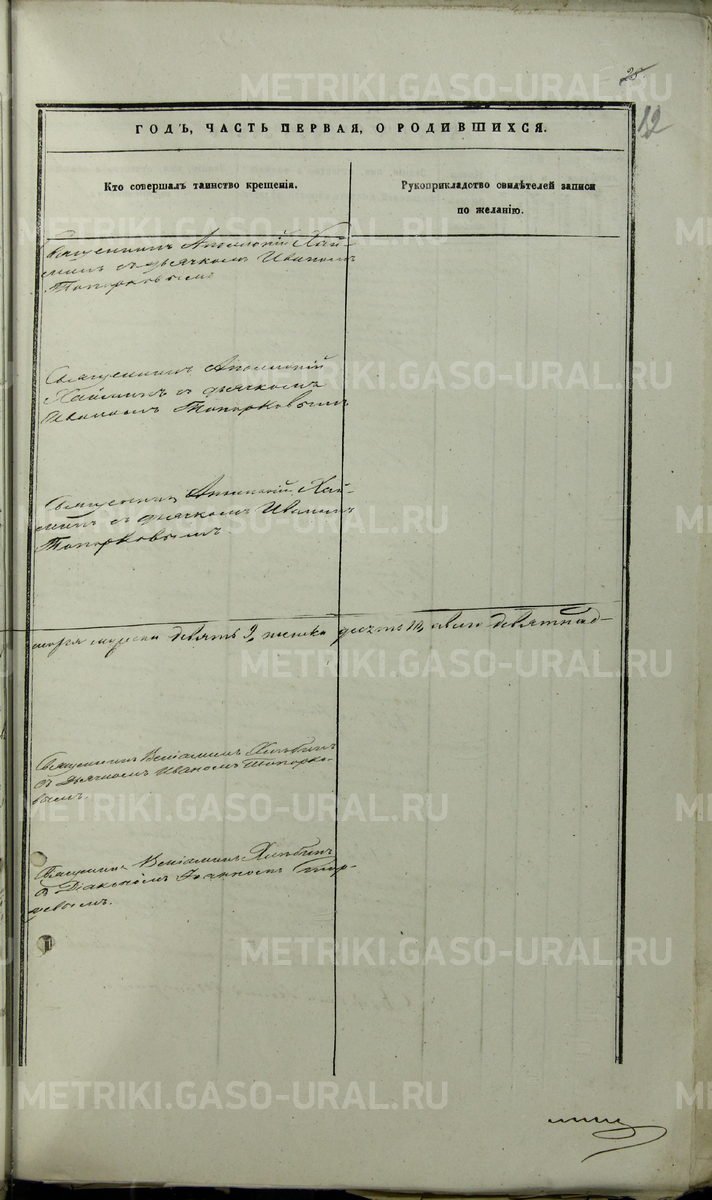 25.
12
ГОДЪ, ЧАСТЬ ПЕРВАЯ, О РОДИВШИХСЯ.
Кто совершалъ таинство крещенія.
Рукоприкладство свидѣтелей записи
по желанію.
Священникъ Аполлоній Хай-
минъ съ дьячкомъ Иваномъ
Топорковымъ
Священникъ Аполлоній
Хайминъ съ дьячкомъ
Иваномъ Топорковымъ
Священникъ Аполлоній Хай-
минъ съ дьячкомъ Иваномъ
Топорковымъ.
девять 9, десять 10, девятнад-
Священникъ Веніаминъ Хлѣбинъ
съ Дьячкомъ Иваномъ Топорко-
вымъ.
Священникъ Веніаминъ Хлѣбинъ
съ Діакономъ Іоанномъ
METRIKI.GASO-URAL.RU